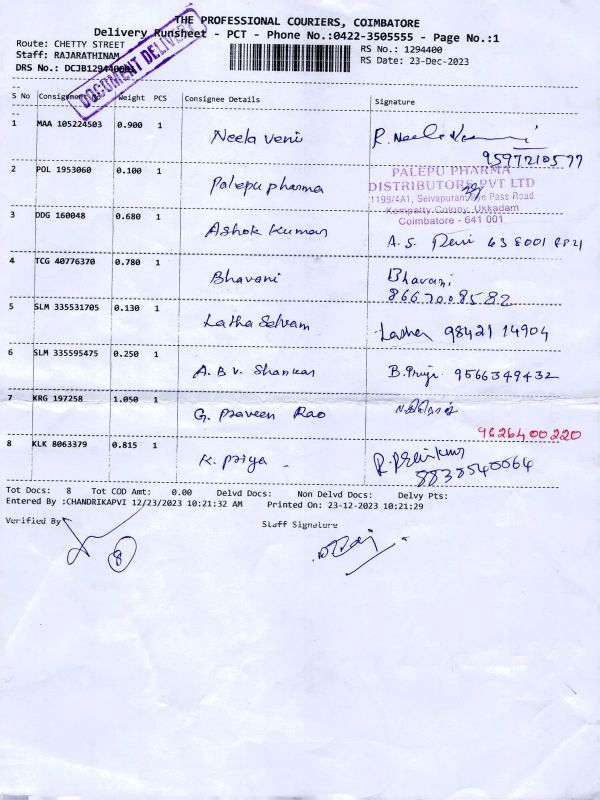 THE PROFESSIONAL COURIERS, COIMBATORE
Delivery Runsheet - PCT - Phone No.:0422-3505555 - Page No.:1
Route: CHETTY STREET RS No.: 1294400
Staff: RAJARATHINAM RS Date: 23-Dec-2023
DRS No.: DCJB1294400
DOCUMENT DELIVERY
S No Consignment Weight PCS Consignee Details Signature
1 MAA 105224503 0.900 1 Neela veni R. Neela Veni
9597210577
2 POL 1953060 0.100 1 Palepu pharma
PALEPU PHARMA
DISTRIBUTORS PVT LTD
1199/4A1, Selvapuram Bye Pass Road
Kempatty Colony, Ukkadam
Coimbatore - 641 001
3 DDG 160048 0.680 1 Ashok Kumar A. S. Devi
4 TCG 40776370 0.780 1 Bhavani Bhavani
8667008582
5 SLM 335531705 0.130 1 Latha Selvam Latha 9842114904
6 SLM 335595475 0.250 1 A. B v. Shankar B. Priya 9566349432
7 KRG 197258 1.050 1 G. Praveen Rao
9626400220
8 KLK 8063379 0.815 1 K. Priya
8838540064
Tot Docs: 8 Tot COD Amt: 0.00 Delvd Docs: Non Delvd Docs: Delvy Pts:
Entered By :CHANDRIKAPVI 12/23/2023 10:21:32 AM Printed On: 23-12-2023 10:21:29
Verified By Staff Signature
8